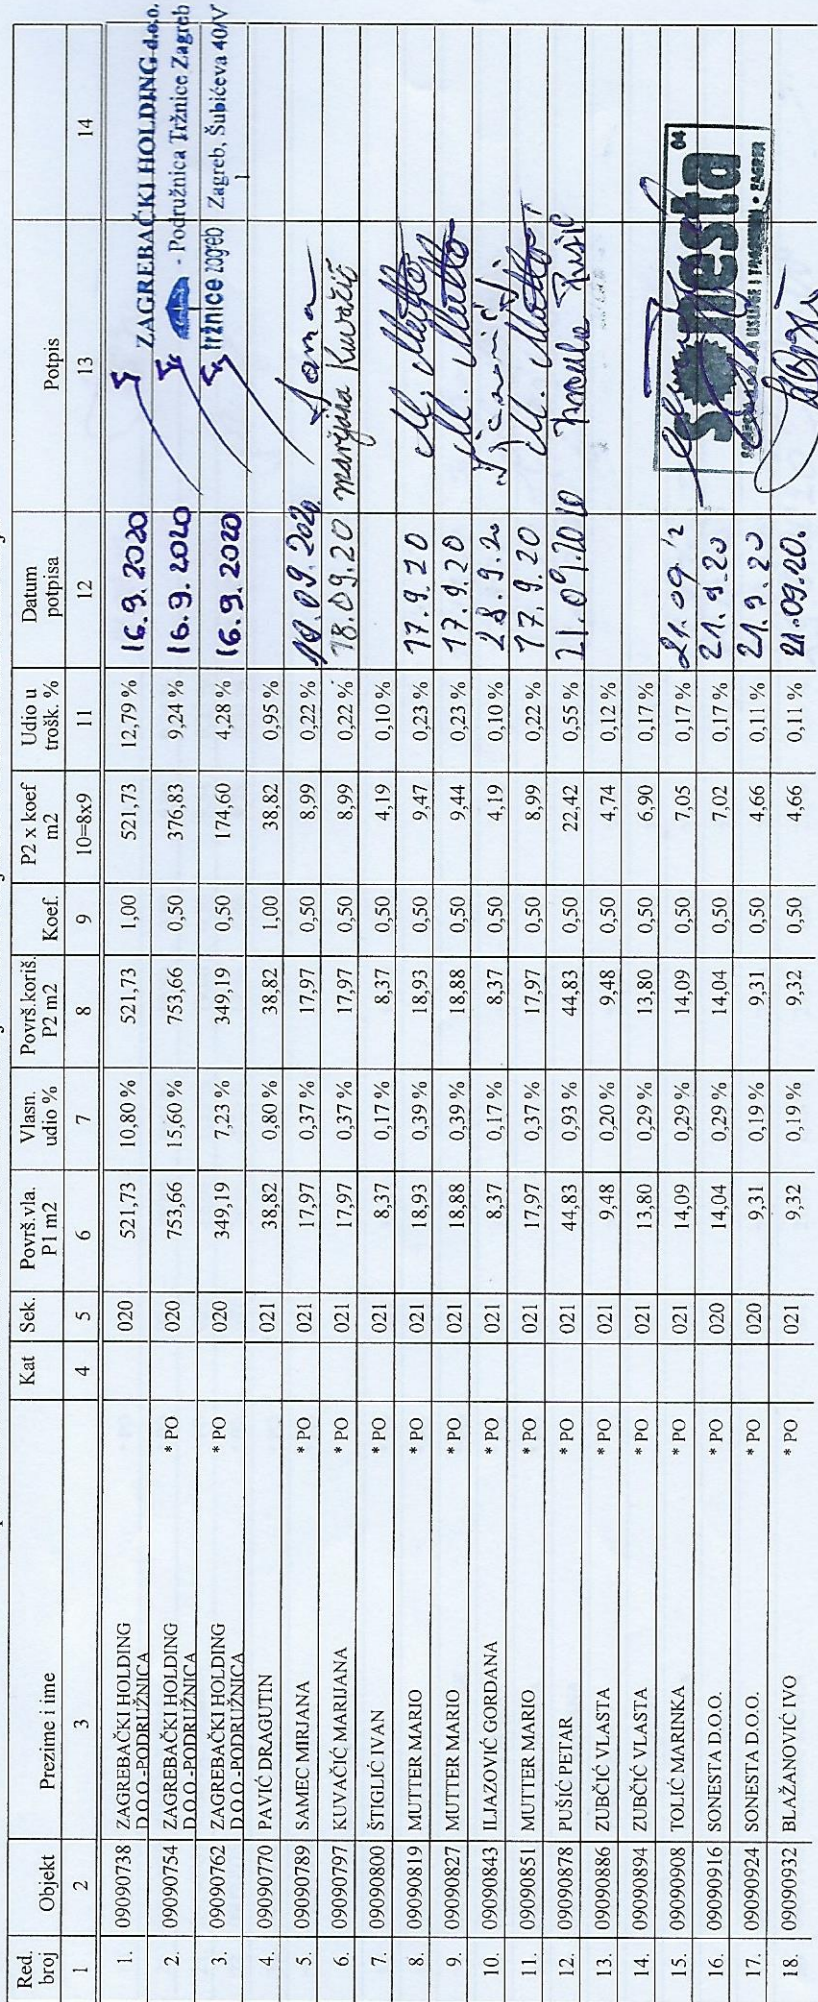 Red. broj | Objekt | Prezime i ime | Kat | Sek. | Površ.vla. P1 m2 | Vlasn. udio % | Površ.koriš. P2 m2 | Koef. | P2 x koef m2 | Udio u trošk. % | Datum potpisa | Potpis
1 | 2 | 3 | 4 | 5 | 6 | 7 | 8 | 9 | 10=8x9 | 11 | 12 | 13 | 14
1. | 09090738 | ZAGREBAČKI HOLDING D.O.O.-PODRUŽNICA | 020 | 521,73 | 10,80 % | 521,73 | 1,00 | 521,73 | 12,79 % | 16.9.2020
2. | 09090754 | ZAGREBAČKI HOLDING D.O.O.-PODRUŽNICA | * PO | 020 | 753,66 | 15,60 % | 753,66 | 0,50 | 376,83 | 9,24 % | 16.9.2020
3. | 09090762 | ZAGREBAČKI HOLDING D.O.O.-PODRUŽNICA | * PO | 020 | 349,19 | 7,23 % | 349,19 | 0,50 | 174,60 | 4,28 % | 16.9.2020
ZAGREBAČKI HOLDING d.o.o.
- Podružnica Tržnice Zagreb
tržnice zagreb Zagreb, Šubićeva 40/V
1
4. | 09090770 | PAVIĆ DRAGUTIN | 021 | 38,82 | 0,80 % | 38,82 | 1,00 | 38,82 | 0,95 %
5. | 09090789 | SAMEC MIRJANA | * PO | 021 | 17,97 | 0,37 % | 17,97 | 0,50 | 8,99 | 0,22 % | 09.2020
6. | 09090797 | KUVAČIĆ MARIJANA | * PO | 021 | 17,97 | 0,37 % | 17,97 | 0,50 | 8,99 | 0,22 % | 18.09.20 | Marijana Kuvačić
7. | 09090800 | ŠTIGLIĆ IVAN | * PO | 021 | 8,37 | 0,17 % | 8,37 | 0,50 | 4,19 | 0,10 %
8. | 09090819 | MUTTER MARIO | * PO | 021 | 18,93 | 0,39 % | 18,93 | 0,50 | 9,47 | 0,23 % | 17.9.20 | M. Mutter
9. | 09090827 | MUTTER MARIO | * PO | 021 | 18,88 | 0,39 % | 18,88 | 0,50 | 9,44 | 0,23 % | 17.9.20 | M. Mutter
10. | 09090843 | ILJAZOVIĆ GORDANA | * PO | 021 | 8,37 | 0,17 % | 8,37 | 0,50 | 4,19 | 0,10 % | 28.9.20
11. | 09090851 | MUTTER MARIO | * PO | 021 | 17,97 | 0,37 % | 17,97 | 0,50 | 8,99 | 0,22 % | 17.9.20 | M. Mutter
12. | 09090878 | PUŠIĆ PETAR | * PO | 021 | 44,83 | 0,93 % | 44,83 | 0,50 | 22,42 | 0,55 % | 21.09.2020 | Pušić
13. | 09090886 | ZUBČIĆ VLASTA | * PO | 021 | 9,48 | 0,20 % | 9,48 | 0,50 | 4,74 | 0,12 %
14. | 09090894 | ZUBČIĆ VLASTA | * PO | 021 | 13,80 | 0,29 % | 13,80 | 0,50 | 6,90 | 0,17 %
15. | 09090908 | TOLIĆ MARINKA | * PO | 021 | 14,09 | 0,29 % | 14,09 | 0,50 | 7,05 | 0,17 % | 21.09.
16. | 09090916 | SONESTA D.O.O. | * PO | 020 | 14,04 | 0,29 % | 14,04 | 0,50 | 7,02 | 0,17 % | 21.9.20
17. | 09090924 | SONESTA D.O.O. | * PO | 020 | 9,31 | 0,19 % | 9,31 | 0,50 | 4,66 | 0,11 % | 21.9.20
04
sonesta
USLUGE I ZAGREB
18. | 09090932 | BLAŽANOVIĆ IVO | * PO | 021 | 9,32 | 0,19 % | 9,32 | 0,50 | 4,66 | 0,11 % | 21.09.20.